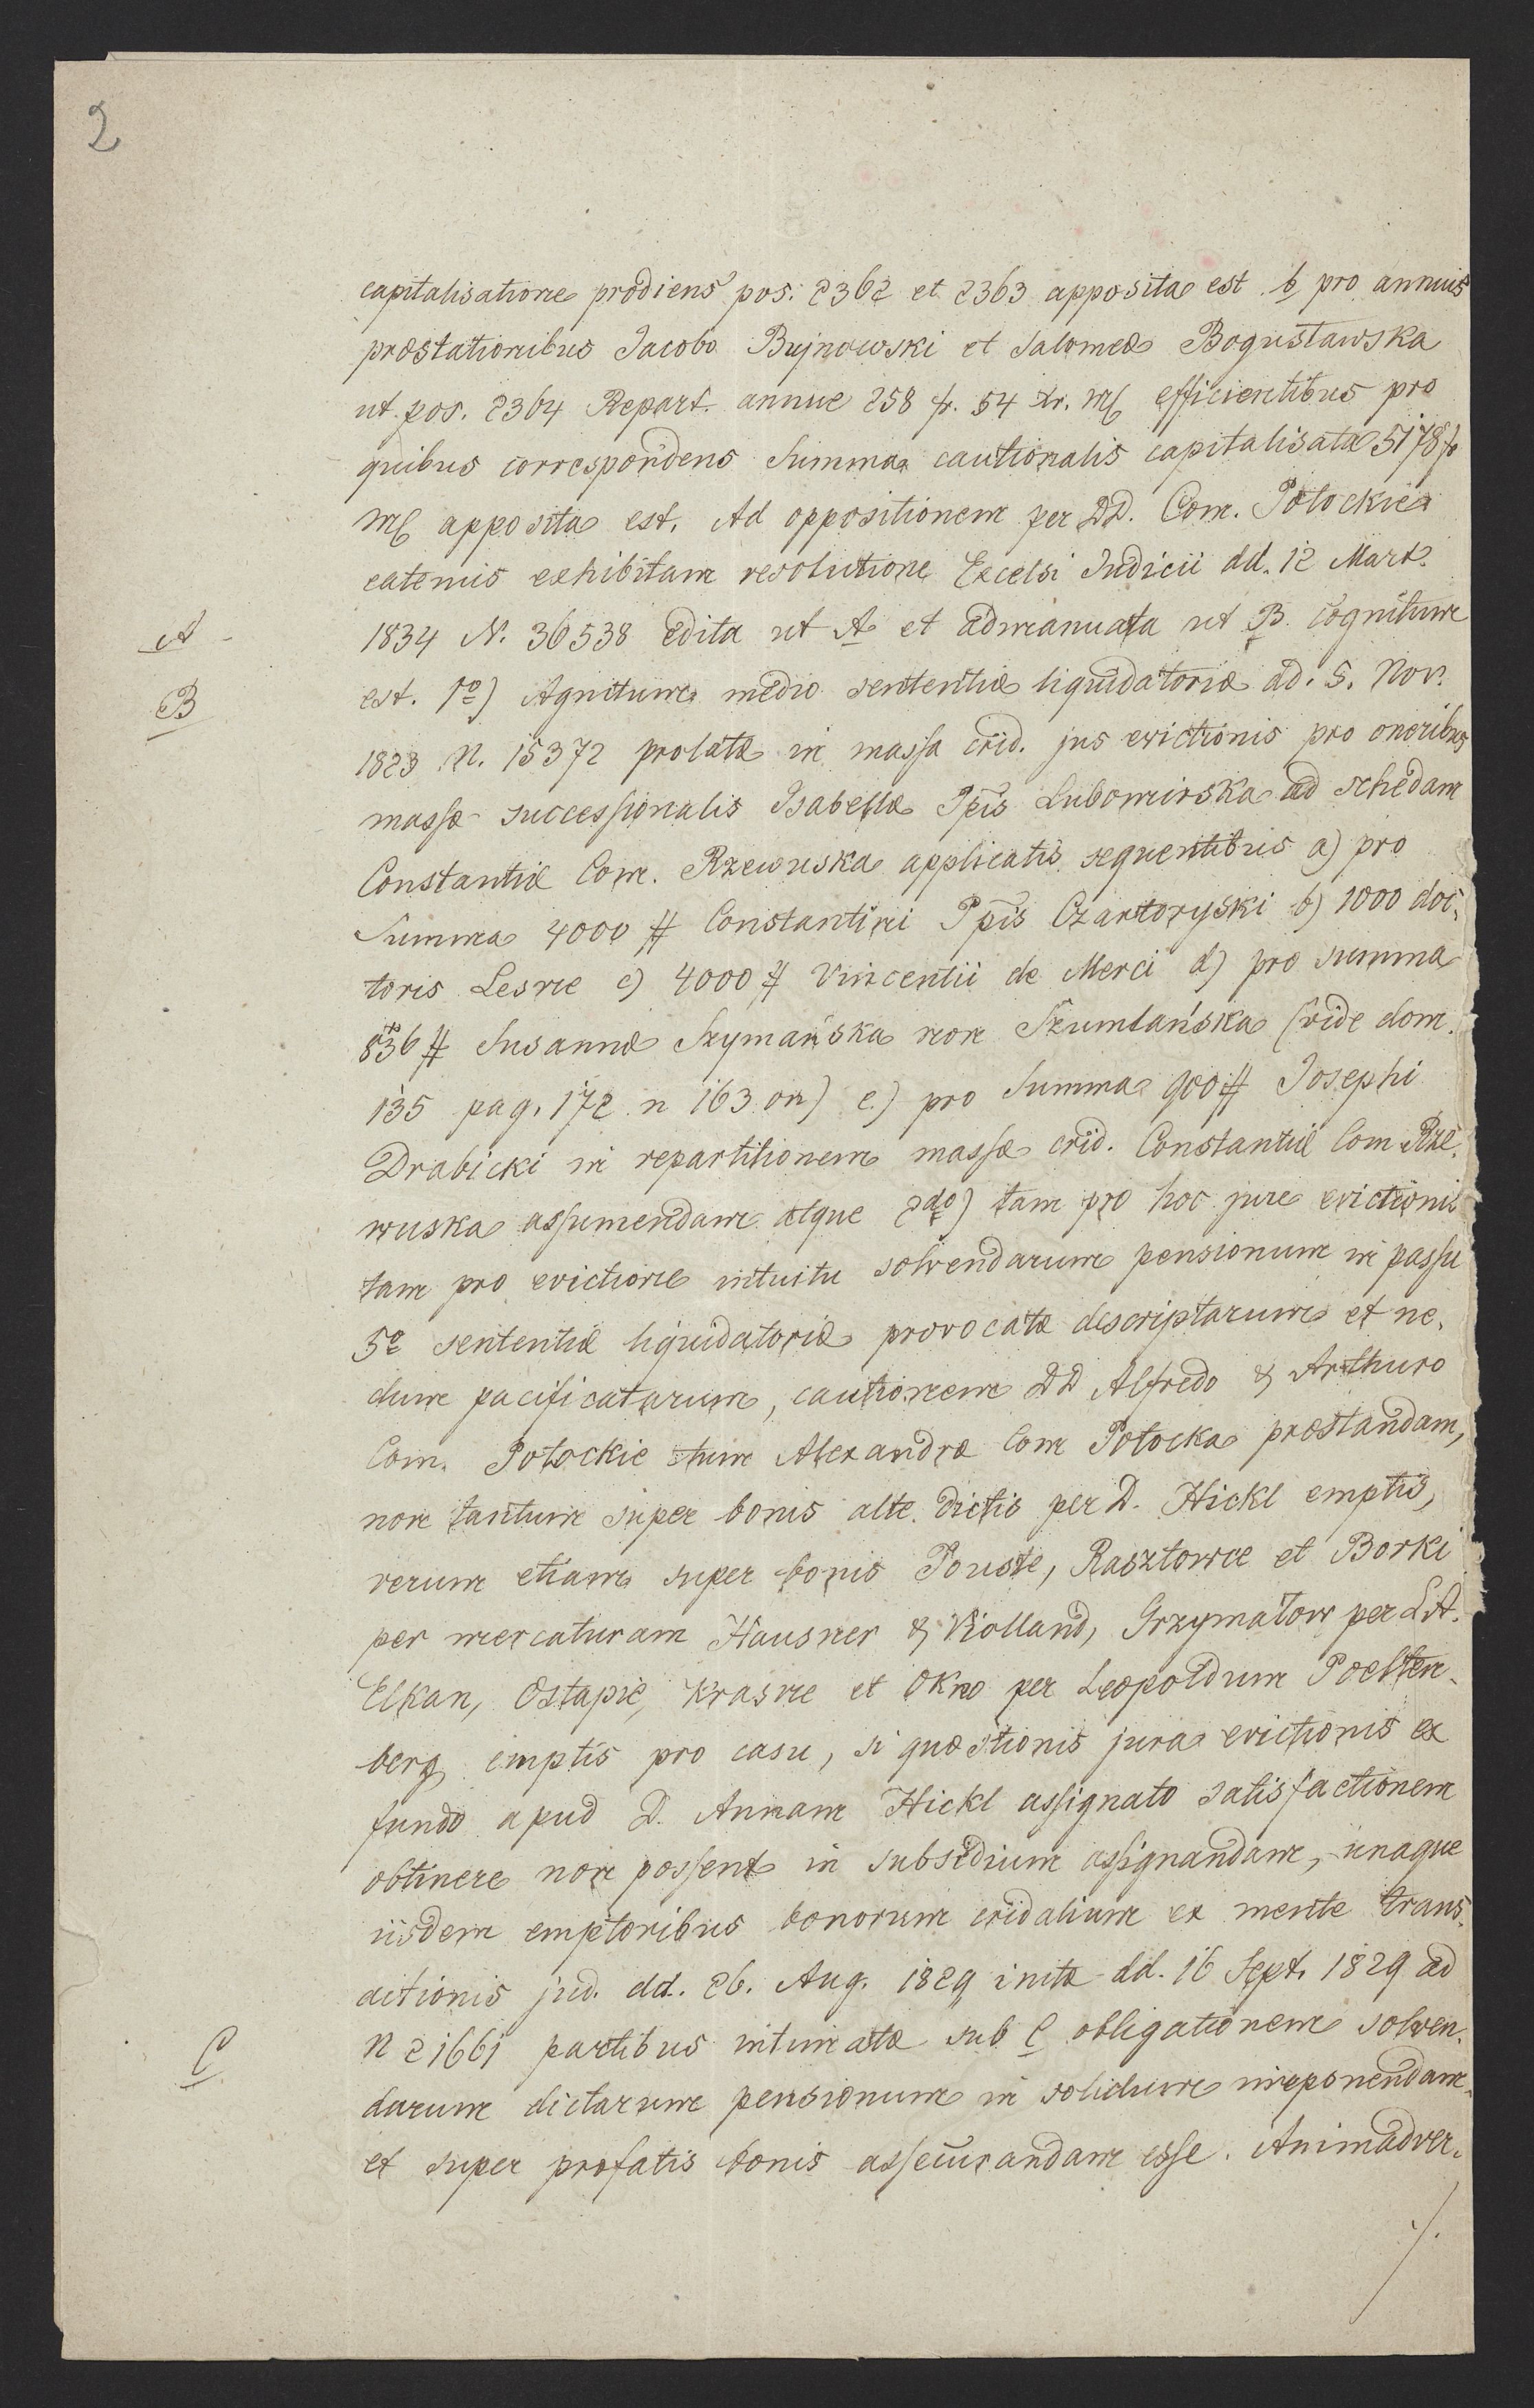 2
capitalisatione prodiens pos. 2362 et 2363 apposita est b pro annuis
præstationibus Jacobo Bujnowski et Salomeæ Bogusławska
ut pos. 2364 Repart. annue 258 fr. 54 xr. M efficientibus pro
quibus correspondens Summa cautionalis capitalisata 5178 fr
M apposita est. Ad oppositionem per DD. Com. Potockie
eatenus exhibitam resolutione Excelsi Judicii dd. 12 Mart.
1834 N. 36538 edita ut A et admanuata ut B. cognitum
A
B
est. 1o) Agnitum medio sententiæ liquidatoriæ dd. 5. Nov.
1823 N. 15372 prolatæ in massa crid. jus evictionis pro oneribus
massæ successionalis Isabellæ Ppis Lubomirska ad schedam
Constantiæ Com. Rzewuska applicatis sequentibus a) pro
Summa 4000 # Constantini Ppis Czartoryski b) 1000 doc-
toris Lesne c) 4000 # Vincentii de Merci d) pro summa
836 # Susannæ Szymańska non Szumlańska (vide dom.
135 pag. 172 n 163 on) e) pro Summa 900 # Josephi
Drabicki in repartitionem massæ crid. Constantiæ Com Rze-
wuska assumendam atque 2do) tam pro hoc jure evictionis
tam pro evictione intuitu solvendarum pensionum in passu
5o sententiæ liquidatoriæ provocatæ descriptarum et ne-
dum pacificatarum, cautionem DD Alfredo & Arthuro
Com. Potockie tum Alexandræ Com Potocka præstandam,
non tantum super bonis alte dictis per D. Hickl emptis,
verum etiam super bonis Touste, Rasztowce et Borki
per mercaturam Hausner & Violland, Grzymałow per L.A.
Elkan, Ostapie, Krasne et Okno per Leopoldum Poelten-
berg emptis pro casu, si quæstionis jura evictionis ex
fundo apud D. Annam Hickl assignato satisfactionem
obtinere non possent in subsidium assignandam, unaque
iisdem emptoribus bonorum cridalium ex mente trans-
actionis jud. dd. 26. Aug. 1829 initæ dd. 16 Sept. 1829 ad
N 21661 partibus intimatæ sub C obligationem solven-
C
darum dictarum pensionum in solidum imponendam
et super præfatis bonis assecurandam esse. Animadver-
./.